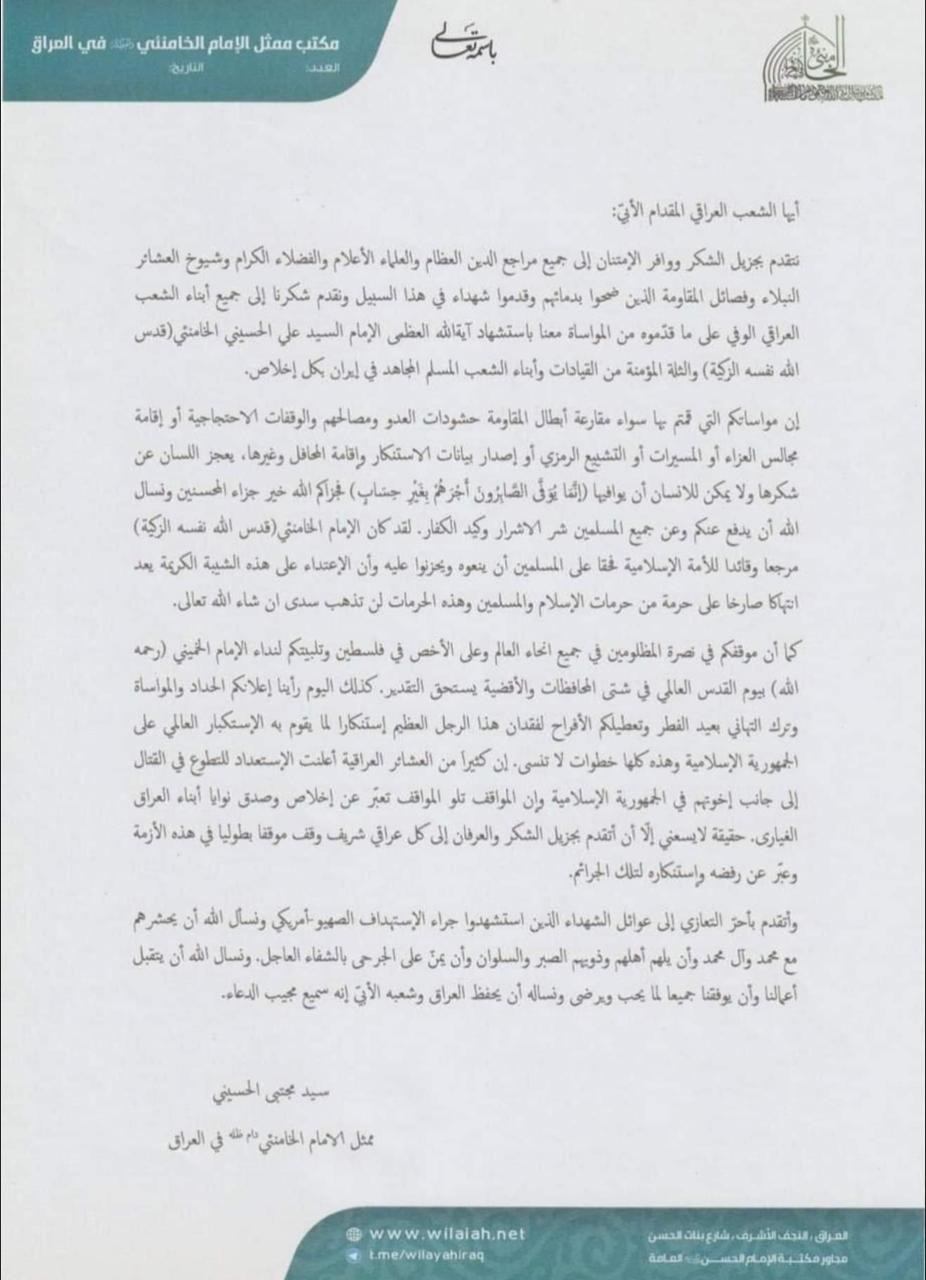 مكتب ممثل الإمام الخامنئي في العراق
العدد:
التاريخ:
باسمه تعالى
أيها الشعب العراقي المقدام الأبيّ:
نتقدم بجزيل الشكر ووافر الإمتنان إلى جميع مراجع الدين العظام والعلماء الأعلام والفضلاء الكرام وشيوخ العشائر
النبلاء وفصائل المقاومة الذين ضحوا بدمائهم وقدموا شهداء في هذا السبيل ونقدم شكرنا إلى جميع أبناء الشعب
العراقي الوفي على ما قدّموه من المواساة معنا باستشهاد آيةالله العظمى الإمام السيد علي الحسيني الخامنئي(قدس
الله نفسه الزكية) والثلة المؤمنة من القيادات وأبناء الشعب المسلم المجاهد في إيران بكل إخلاص.
إن مواساتكم التي قمتم بها سواء مقارعة أبطال المقاومة حشودات العدو ومصالحهم والوقفات الاحتجاجية أو إقامة
مجالس العزاء أو المسيرات أو التشييع الرمزي أو إصدار بيانات الاستنكار وإقامة المحافل وغيرها، يعجز اللسان عن
شكرها ولا يمكن للانسان أن يوافيها (إِنَّمَا يُوَفَّى الصَّابِرُونَ أَجْرَهُمْ بِغَيْرِ حِسَابٍ) فجزاكم الله خير جزاء المحسنين ونسال
الله أن يدفع عنكم وعن جميع المسلمين شر الاشرار وكيد الكفار. لقد كان الإمام الخامنئي(قدس الله نفسه الزكية)
مرجعا وقائدا للأمة الإسلامية فحقا على المسلمين أن ينعوه ويحزنوا عليه وأن الإعتداء على هذه الشيبة الكريمة يعد
انتهاكا صارخا على حرمة من حرمات الإسلام والمسلمين وهذه الحرمات لن تذهب سدى ان شاء الله تعالى.
كما أن موقفكم في نصرة المظلومين في جميع انحاء العالم وعلى الأخص في فلسطين وتلبيتكم لنداء الإمام الخميني (رحمه
الله) بيوم القدس العالمي في شتى المحافظات والأقضية يستحق التقدير. كذلك اليوم رأينا إعلانكم الحداد والمواساة
وترك التهاني بعيد الفطر وتعطيلكم الأفراح لفقدان هذا الرجل العظيم إستنكارا لما يقوم به الإستكبار العالمي على
الجمهورية الإسلامية وهذه كلها خطوات لا تنسى. إن كثيراً من العشائر العراقية أعلنت الإستعداد للتطوع في القتال
إلى جانب إخوتهم في الجمهورية الإسلامية وإن المواقف تلو المواقف تعبّر عن إخلاص وصدق نوايا أبناء العراق
الغيارى. حقيقة لايسعني إلّا أن أتقدم بجزيل الشكر والعرفان إلى كل عراقي شريف وقف موقفا بطوليا في هذه الأزمة
وعبّر عن رفضه وإستنكاره لتلك الجرائم.
وأتقدم بأحرّ التعازي إلى عوائل الشهداء الذين استشهدوا جراء الإستهداف الصهيو-أمريكي ونسأل الله أن يحشرهم
مع محمد وآل محمد وأن يلهم أهلهم وذويهم الصبر والسلوان وأن يمنّ على الجرحى بالشفاء العاجل. ونسال الله أن يتقبل
أعمالنا وأن يوفقنا جميعا لما يحب ويرضى ونساله أن يحفظ العراق وشعبه الأبيّ إنه سميع مجيب الدعاء.
سيد مجتبى الحسيني
ممثل الامام الخامنئي دام ظله في العراق
العراق ، النجف الأشرف ، شارع بنات الحسن
مجاور مكتبة الإمام الحسن العامة
www.wilaiah.net
t.me/wilayahiraq